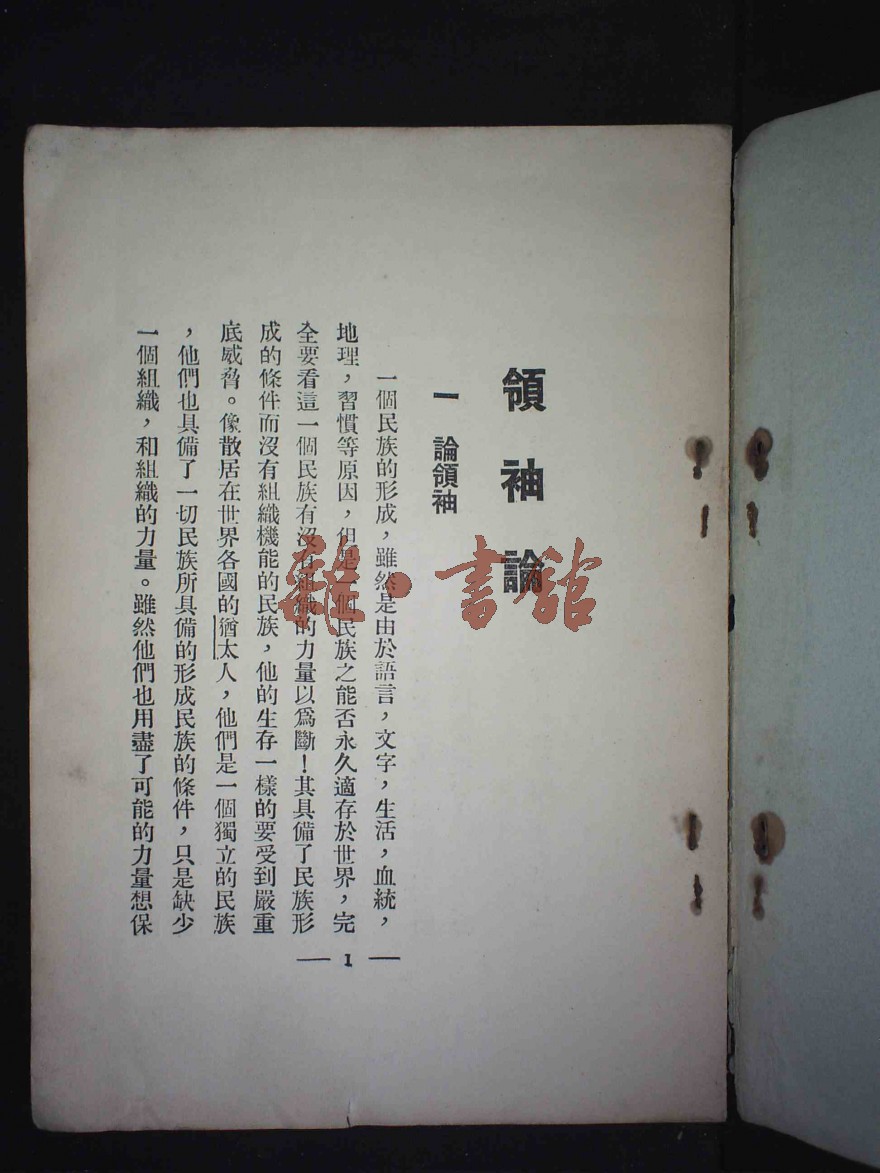 領袖論
一 論領袖
一個民族的形成，雖然是由於語言，文字，生活，血統，
地理，習慣等原因，但是一個民族之能否永久適存於世界，完
全要看這一個民族有沒有組織的力量以爲斷！其具備了民族形
成的條件而沒有組織機能的民族，他的生存一樣的要受到嚴重
底威脅。像散居在世界各國的猶太人，他們是一個獨立的民族
，他們也具備了一切民族所具備的形成民族的條件，只是缺少
一個組織，和組織的力量。雖然他們也用盡了可能的力量想保
— 1 —
雜·書館